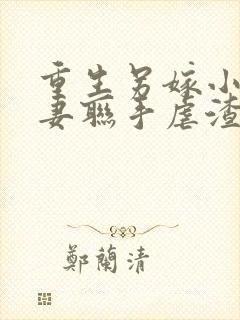 重生另嫁小
妻聯手虐渣
鄭蘭清